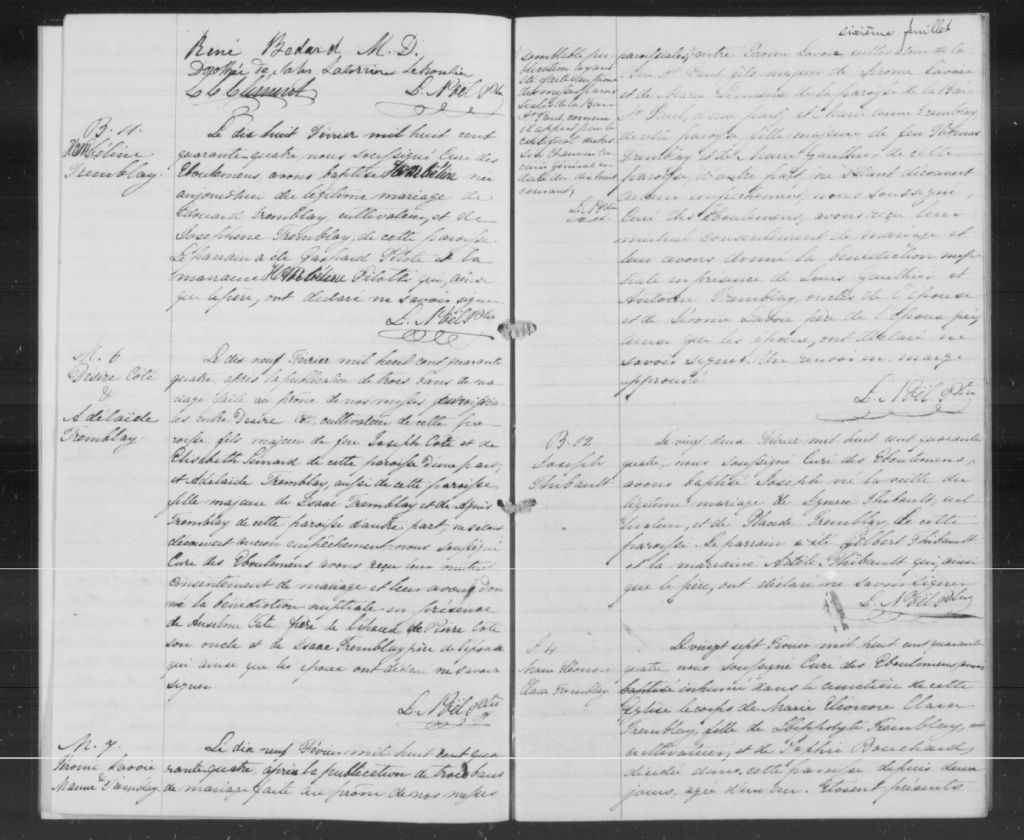 René Bedard M. D.
Dorothée de Sales Laterrière
L. Noël Ptre
B. 11.
Hombéline
Tremblay.
Le dix huit Février mil huit cent
quarante-quatre, nous soussigné Curé des
Eboulemens, avons baptisé Hombéline née
aujourd'hui du légitime mariage de
Edouard Tremblay, cultivateur, et de
Josephine Tremblay, de cette paroisse.
Le parrain a été Gaspard Pilote et la
marraine Hombéline Pilotte qui, ainsi
que le père, ont déclaré ne savoir signer
L. Noël Ptre
M. 6
Desiré Coté
&
Adelaïde
Tremblay.
Le dix neuf Février mil huit cent quarante
quatre, après la publication de trois bans de ma
riage faite au prône de nos messes paroissia
les entre Desiré Coté, cultivateur de cette pa
roisse, fils majeur de feu Joseph Coté et de
Elisabeth Simard de cette paroisse d'une part;
et Adelaide Tremblay, aussi de cette paroisse,
fille majeure de Isaac Tremblay et de Agnès
Tremblay de cette paroisse d'autre part, ne s'étant
découvert aucun empêchement, nous soussigné
Curé des Eboulemens, avons reçu leur mutuel
consentement de mariage et leur avons don
né la bénédiction nuptiale en présence
de Anselme Coté frère de l'époux de Pierre Coté
son oncle et de Isaac Tremblay père de l'épouse
qui ainsi que les époux ont déclaré ne savoir
signer
L. Noël Ptre
M. 7.
Jérome Lavoie
&
Marine Tremblay.
Le dix-neuf Février mil huit cent qua
rante-quatre, après la publication de trois bans
de mariage faite au prône de nos messes
sixième feuillet
semblable pu
blication ayant
été faite au prône
des messes parois
siales de la Baie
St Paul comme
il appert par le
certificat de
en
date du dix huit
courant;
L. Noël
Ptre
paroissiales, entre Jérome Lavoie cultivateur de la
Baie St Paul, fils majeur de Jérome Lavoie
et de Marie Simard de la paroisse de la Baie
St Paul, d'une part; et Marie Tremblay
de cette paroisse, fille majeure de feu Thomas
Tremblay et de Marie Gauthier, de cette
paroisse, d'autre part, ne s'étant découvert
aucun empêchement, nous soussigné,
Curé des Eboulemens, avons reçu leur
mutuel consentement de mariage et
leur avons donné la bénédiction nup
tiale en présence de Louis Gauthier et
Antoine Tremblay, oncles de l'épouse
et de Jérome Lavoie père de l'époux qui,
ainsi que les époux, ont déclaré ne
savoir signer. Un renvoi en marge
approuvé
L. Noël Ptre
B. 12
Joseph
Thibault
Le vingt deux Février mil huit cent quarante
quatre, nous soussigné Curé des Eboulemens,
avons baptisé Joseph né la veille du
légitime mariage de Thibault, cul
tivateur, et de Placide Tremblay de cette
paroisse. Le parrain a été Thibault
et la marraine Thibault qui, ainsi
que le père, ont déclaré ne savoir signer
L. Noël Ptre
S. 4
Marie Eléonore
Clara Tremblay
Le vingt sept Février mil huit cent quarante
quatre, nous soussigné Curé des Eboulemens, avons
baptisé inhumé dans le cimetière de cette
Eglise le corps de Marie Eléonore Clara
Tremblay, fille de Hippolyte Tremblay,
cultivateur, et de Bouchard,
décédée dans cette paroisse depuis deux
jours, agée d'un an. Etoient présents